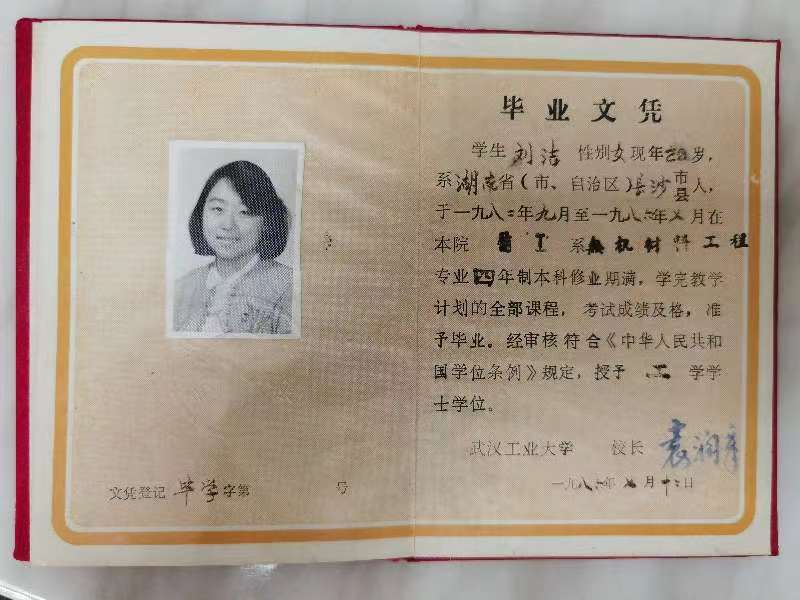 毕业文凭
学生 刘洁 性别女现年 岁，
系湖南省（市、自治区）长沙市县人，
于一九八二年九月至一九八六年七月在
本院 工系無机材料工程
专业四年制本科修业期满，学完教学
计划的全部课程，考试成绩及格，准
予毕业。经审核符合《中华人民共和
国学位条例》规定，授予 工 学学
士学位。
武汉工业大学 校长
一九八六年七月十二日
文凭登记 毕学字第 号